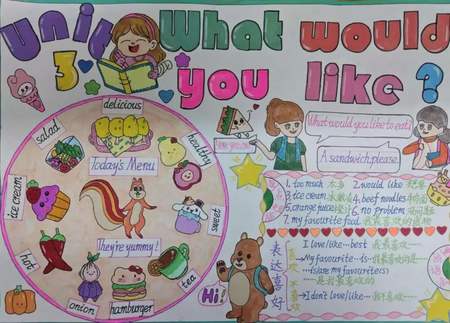 Unit 3 What would you like?
delicious
salad
healthy
Today's Menu
ice cream
sweet
They're yummy!
hot
tea
onion
hamburger
Hi!
What would you like to eat?
A sandwich, please.
1. too much 太多
2. would like
3. ice cream 冰激凌
4. beef noodles 牛肉面
5. orange juice 橙汁
6. no problem 没问题
7. my favourite food 我最喜欢的食物
表达喜好
I love/like...best 我最喜欢...
My favourite...is...我最喜欢的是...
...is/are my favourite(s)
...是我最喜欢的
I don't love/like...我不喜欢...